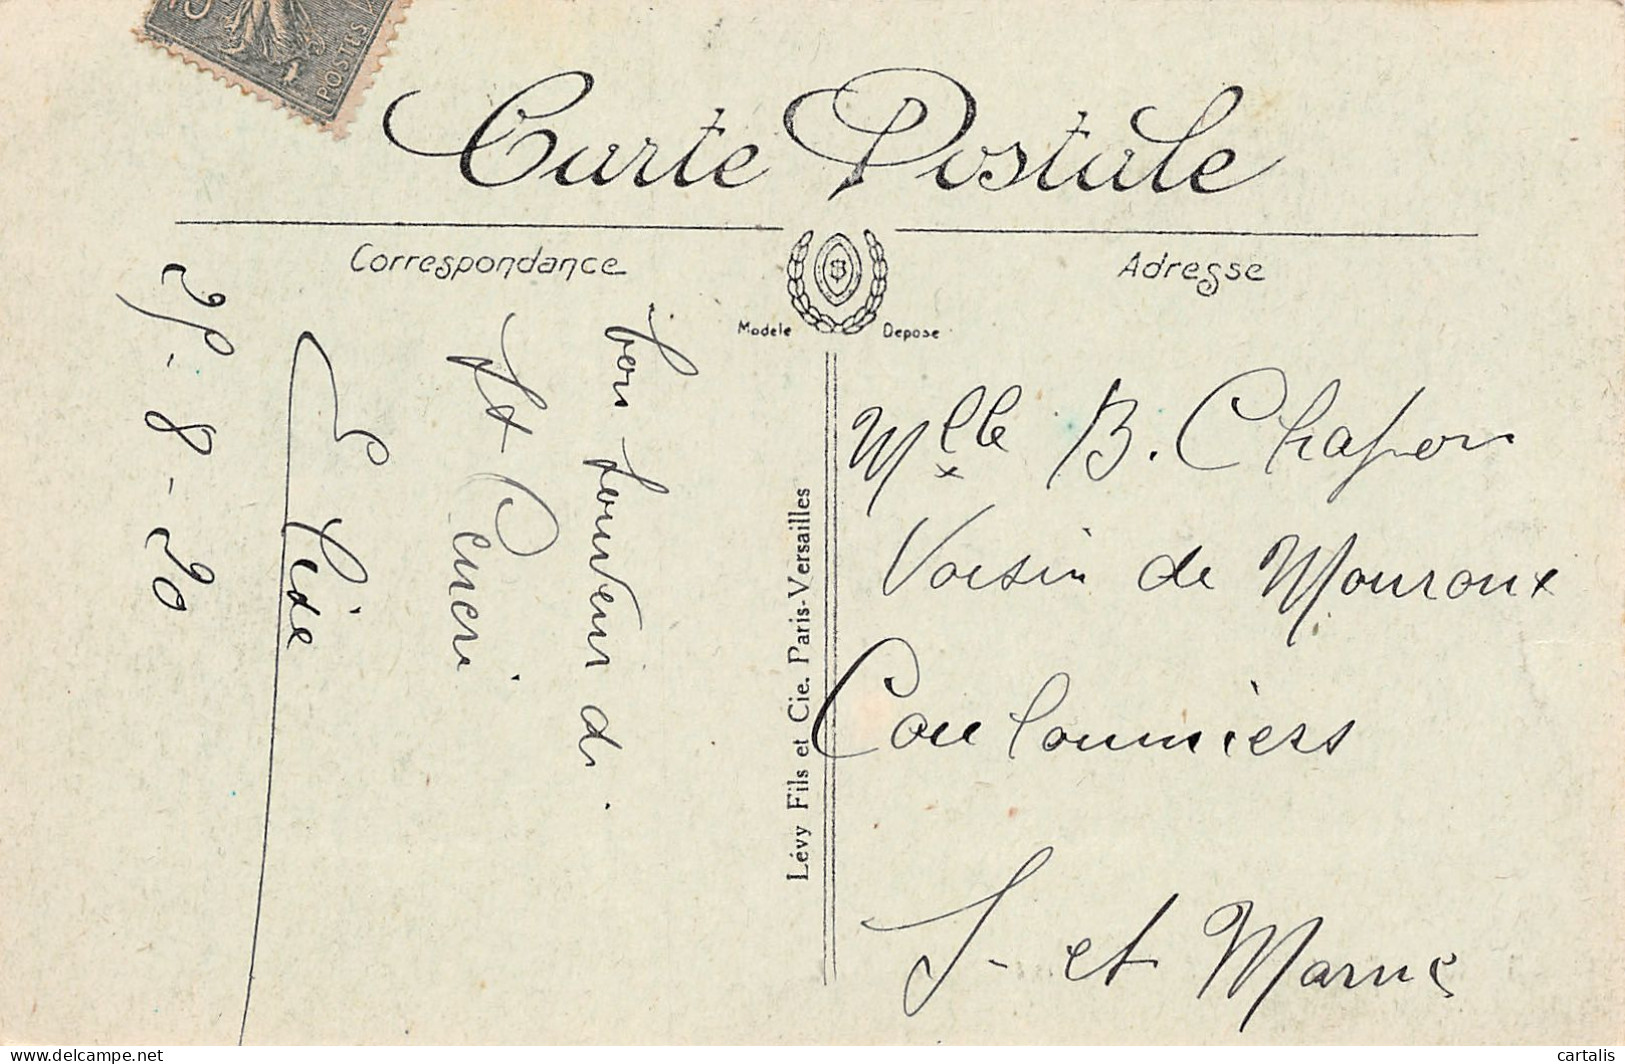 15
POSTES
Carte Postale
Correspondance
Adresse
Modele Depose
bon souvenir de
St
25-8-20
Mlle B. Chapon
Voisin de Mouroux
Coulommiers
S. et Marne
Lévy Fils et Cie. Paris-Versailles
www.delcampe.net
cartalis